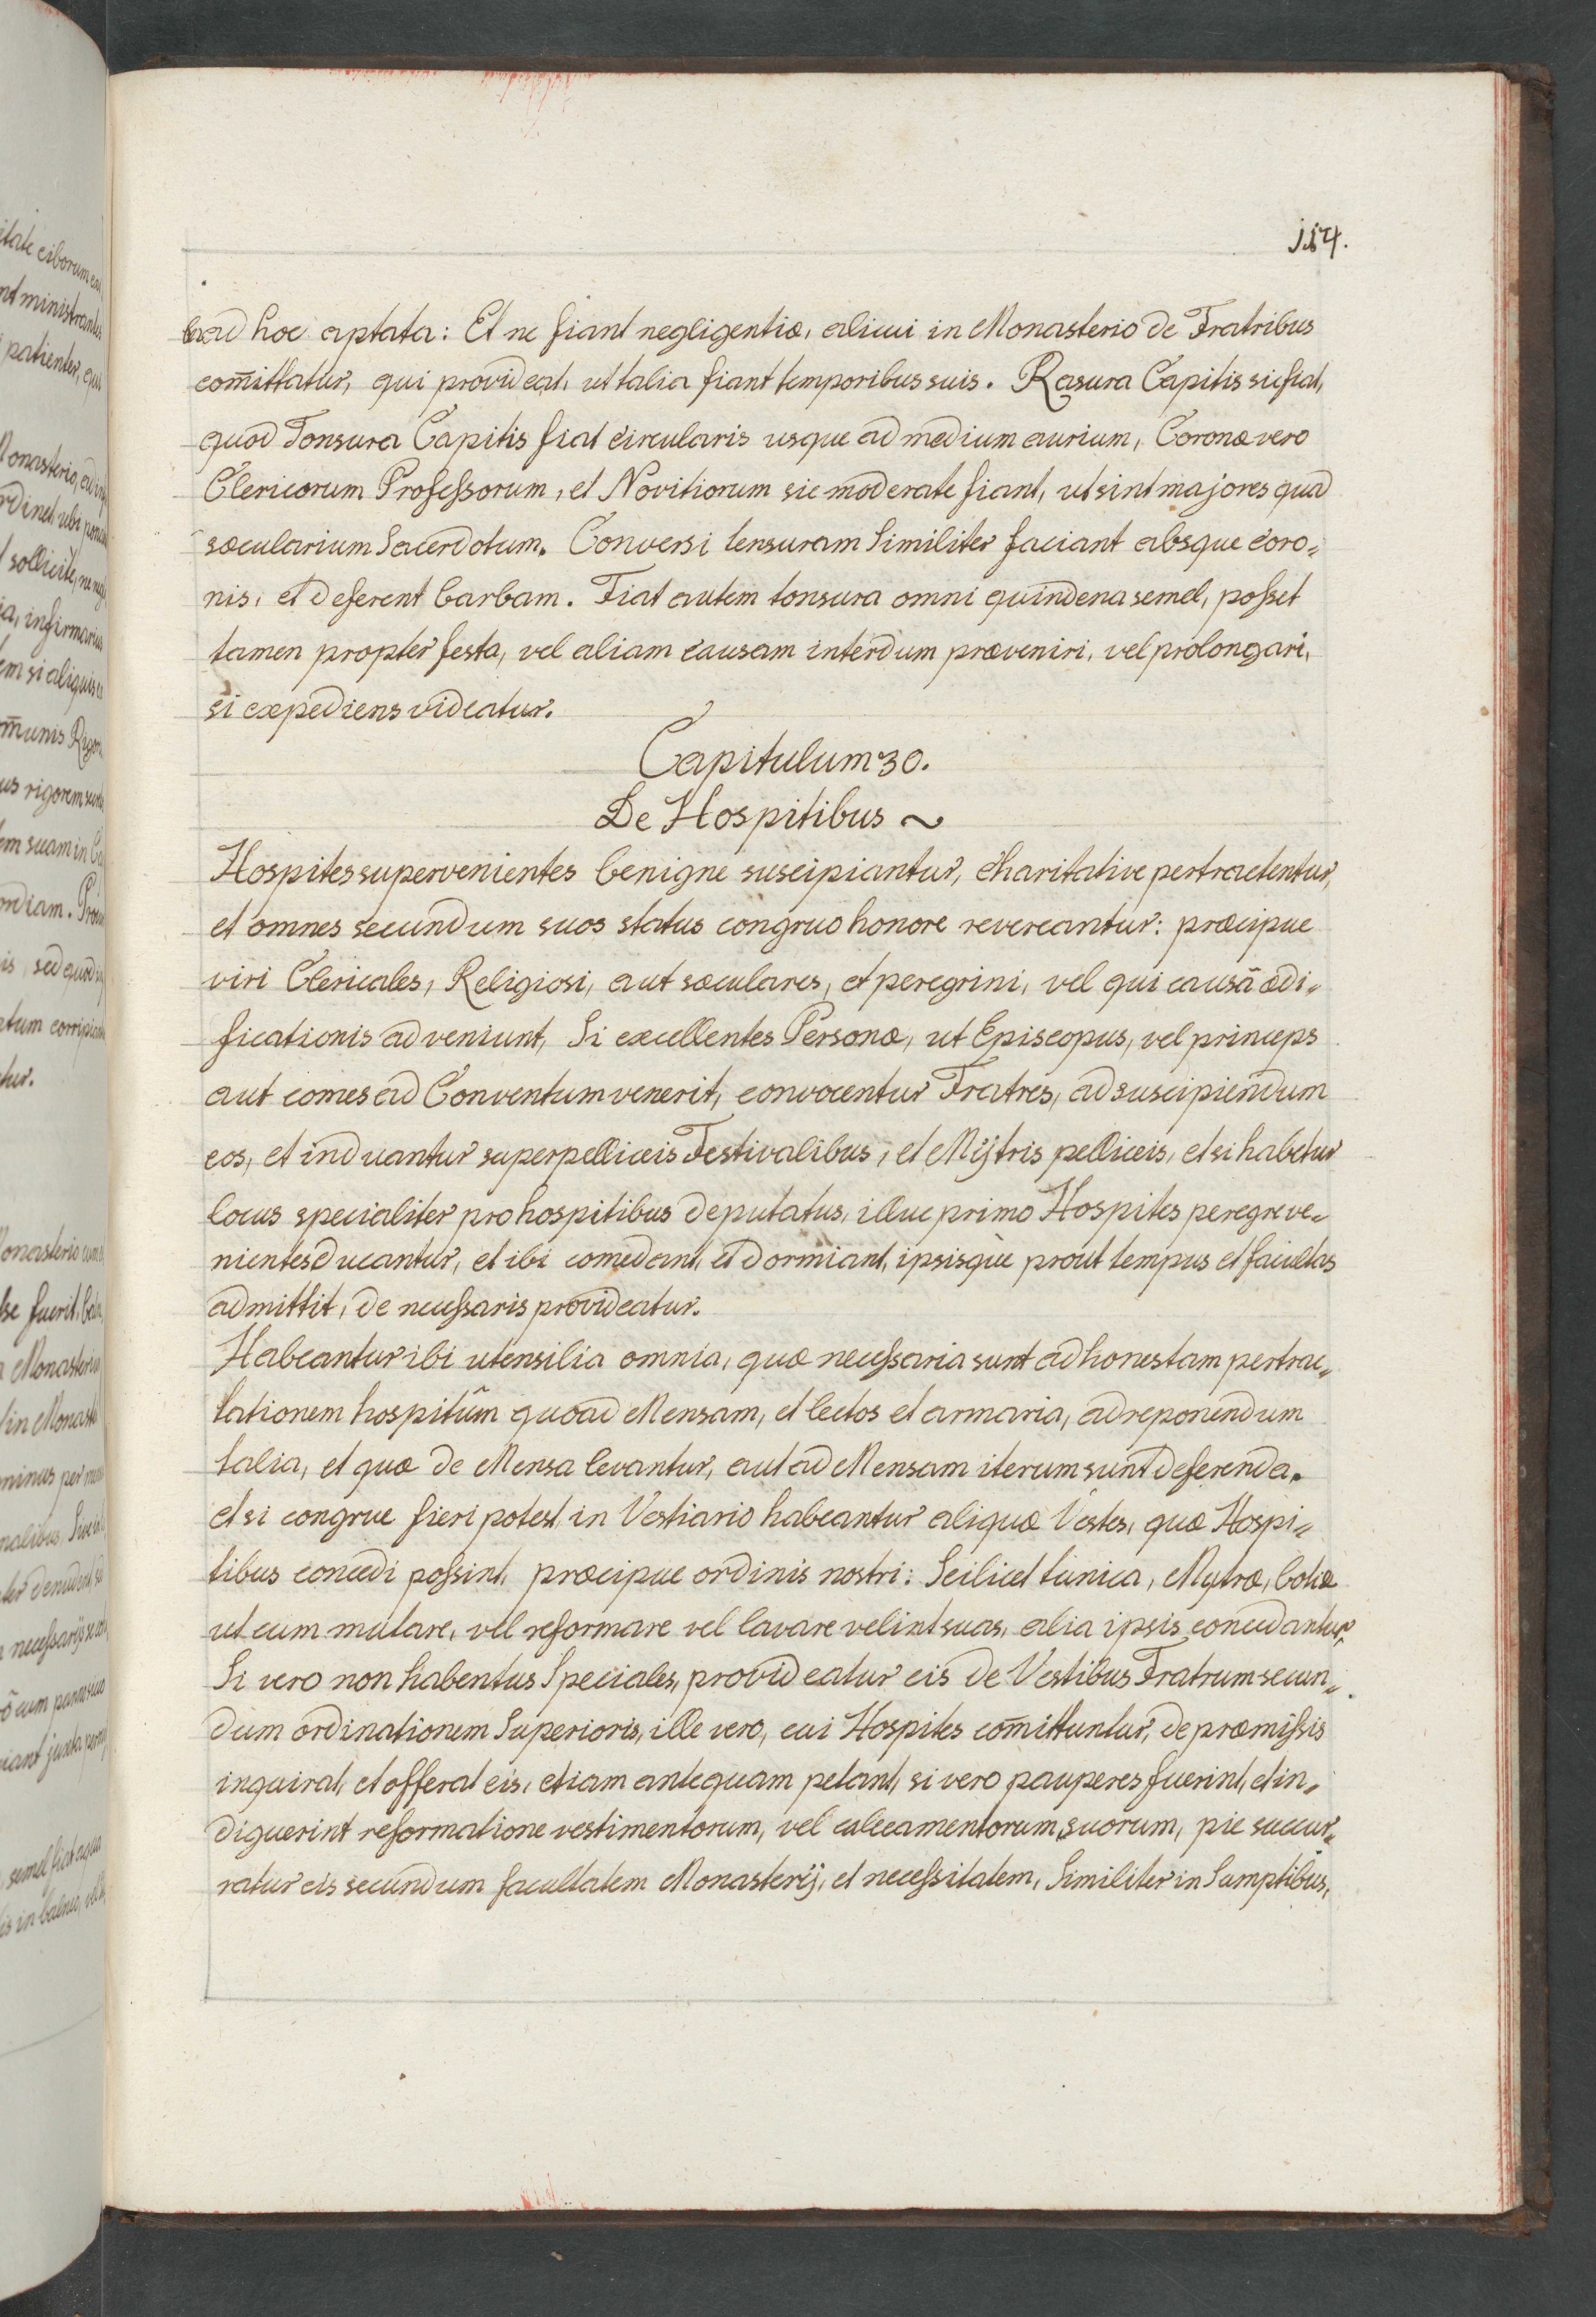 114.
ba ad hoc aptata: Et ne fiant negligentiæ, alicui in Monasterio de Fratribus
com̄ittatur, qui provideat, ut talia fiant temporibus suis. Rasura Capitis sic fiat,
quod Tonsura Capitis fiat circularis usque ad medium aurium, Coronæ vero
Clericorum Professorum, et Novitiorum sic moderate fiant, ut sint majores quad
sæcularium Sacerdotum. Conversi tensuram Similiter faciant absque coro„
nis, et deferent barbam. Fiat autem tonsura omni quindena semel, posset
tamen propter festa, vel aliam causam interdum præveniri, vel prolongari,
si expediens videatur.
Capitulum 30.
De Hospitibus ~
Hospites supervenientes benigne suscipiantur, charitative pertractentur,
et omnes secundum suos status congruo honore revereantur: præcipue
viri Clericales, Religiosi, aut sæculares, et peregrini, vel qui causâ ædi„
ficationis adveniunt, Si excellentes Personæ, ut Episcopus, vel princeps
aut comes ad Conventum venerit, convocentur Fratres, ad suscipiendum
eos, et induantur superpelliceis Festivalibus, et Mÿtris pelliceis, et si habetur
locus specialiter pro hospitibus deputatus, illuc primo Hospites peregre ve„
nientes ducantur, et ibi comedant, et dormiant, ipsisque prout tempus et facultas
admittit, de necessaris provideatur.
Habeantur ibi utensilia omnia, quæ necessaria sunt ad honestam pertrac„
tationem hospitûm quoad Mensam, et lectos et armaria, ad reponendum
talia, et quæ de Mensa levantur, aut ad Mensam iterum sunt deferenda.
et si congrue fieri potest in Vestiario habeantur aliquæ Vestes, quæ Hospi„
tibus concedi possint, præcipue ordinis nostri: Scilicet tunica, Mytræ, botæ
ut cum mutare, vel reformare vel lavare velint suas, alia ipsis concedantur,
Si vero non habentus Speciales, provideatur eis de Vestibus Fratrum secun„
dum ordinationem Superioris, ille vero, cui Hospites com̄ittuntur, de præmissis
inquirat, et offerat eis, etiam antequam petant, si vero pauperes fuerint, et in„
diguerint reformatione vestimentorum, vel calceamentorum suorum, pie succur„
ratur eis secundum facultatem Monasterÿ, et necessitatem, Similiter in Sumptibus,